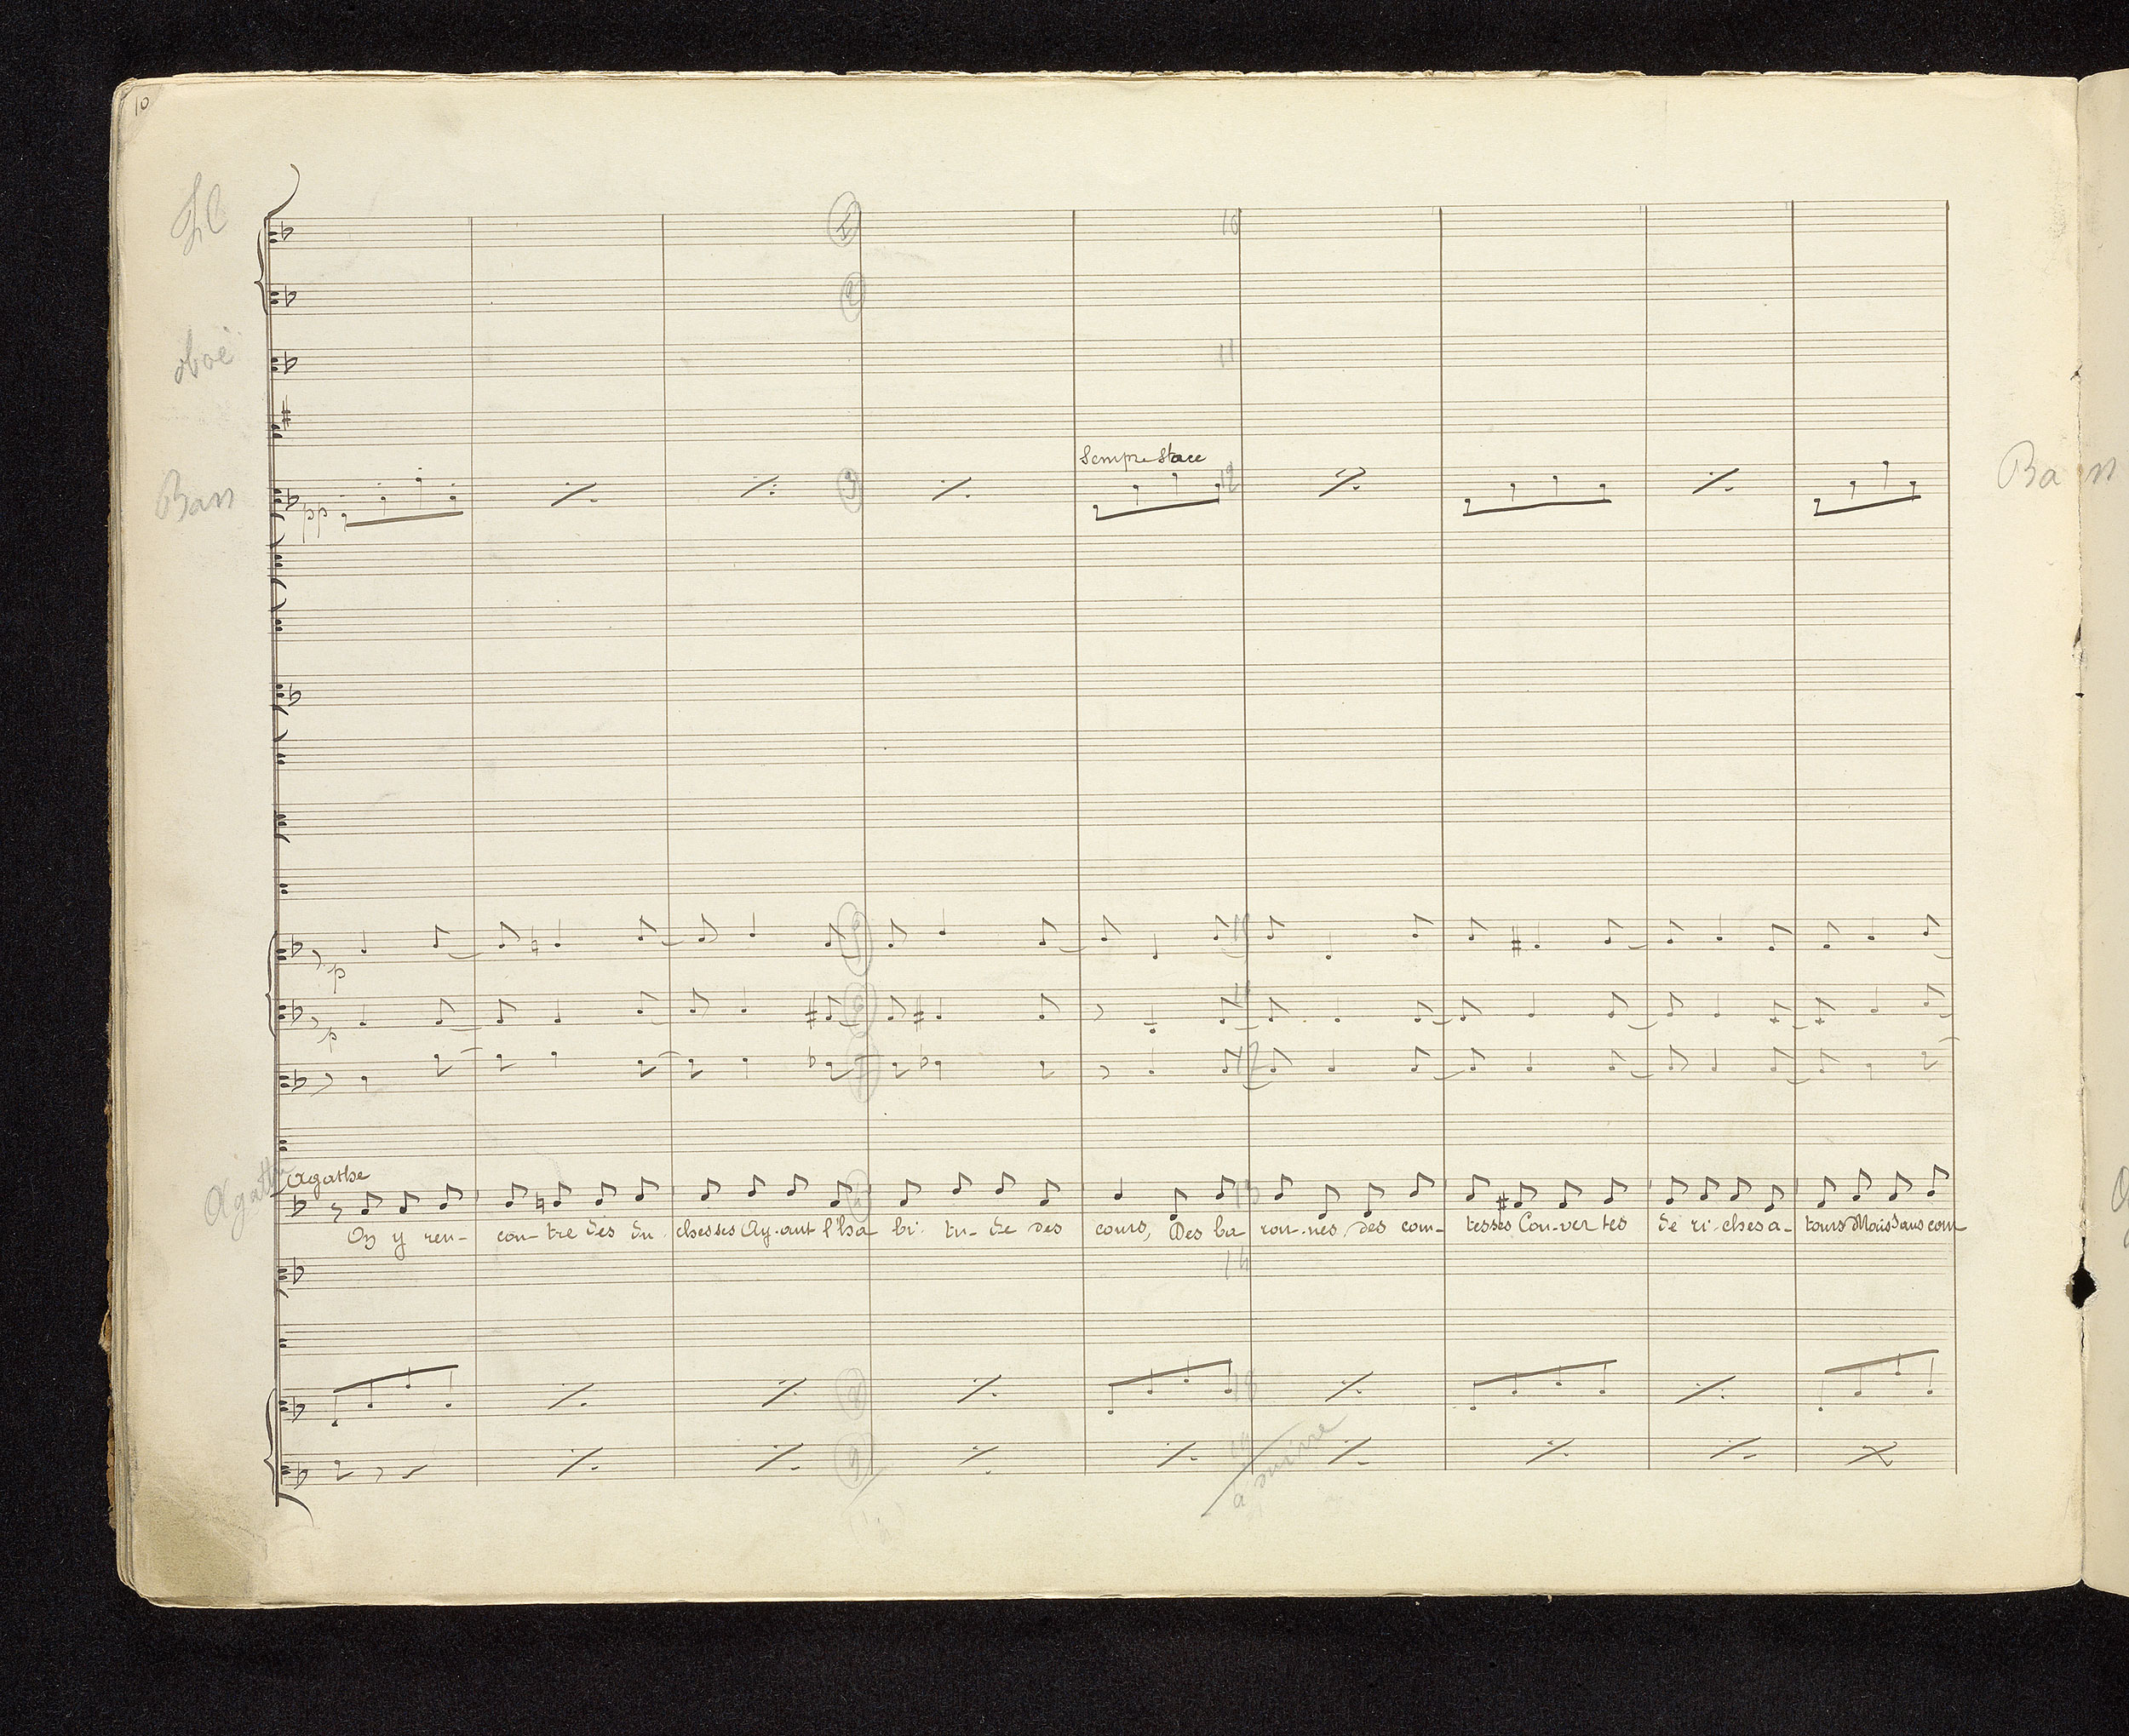 10
fl
I
10
2
oboe
11
Sempre stacc
Bass
pp
3
12
Ba n
p
p
Agathe
Agathe
On y ren- con- tre des du chesses Ay-ant l'ha bi- tu- de des cours, Des ba ron-nes des com- tesses Cou-ver tes de ri-ches a- tours Mais sans com
14
8
18
9
19
à suivre